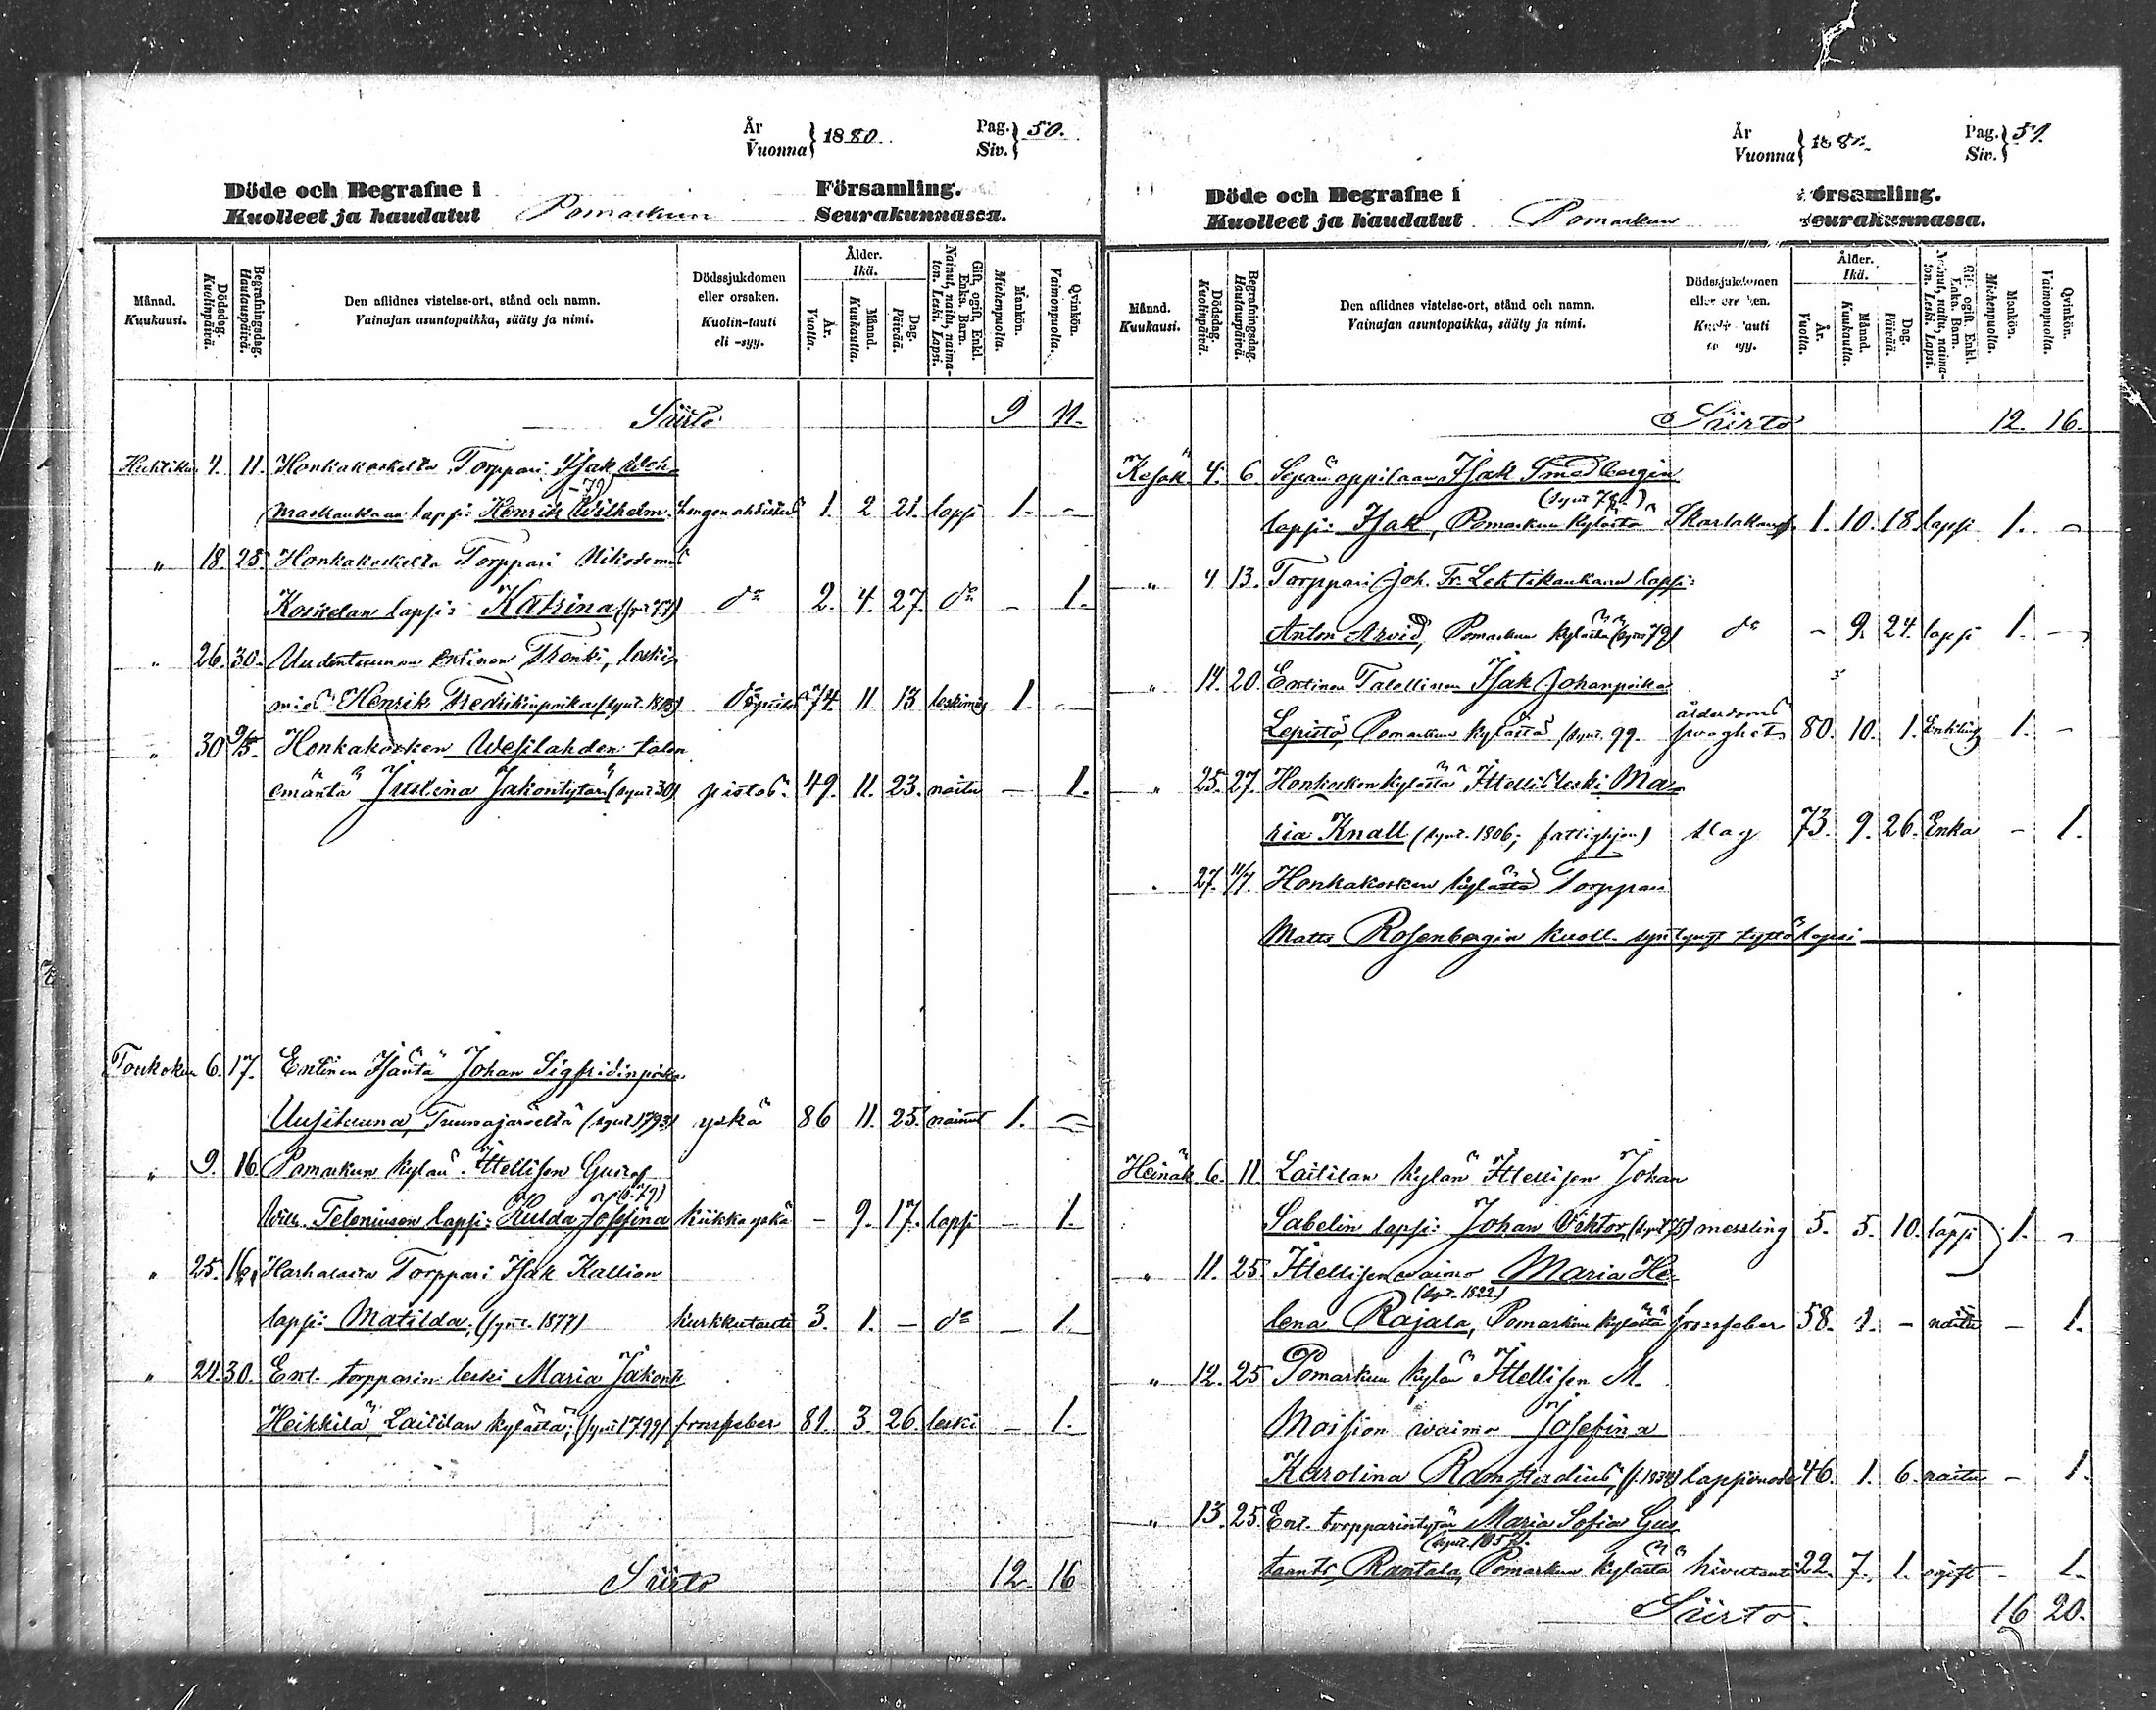 År
Vuonna } 1880.
Pag.
Siv. } 50.
Döde och Begrafne i Församling.
Kuolleet ja haudatut Pomarkun Seurakunnassa.
Månad. Kuukausi.
Dödsdag. Kuolinpäivä.
Begrafningsdag. Hautauspäivä.
Den aflidnes vistelse-ort, stånd och namn.
Vainajan asuntopaikka, sääty ja nimi.
Dödssjukdomen eller orsaken.
Kuolin-tauti eli -syy.
Ålder. Ikä.
År. Vuotta.
Månad. Kuukautta.
Dag. Päivää.
Gift, ogift, Enkl. Enka. Barn.
Nainut, naitu, naimaton. Leski. Lapsi.
Mankön. Miehenpuolta.
Qvinkön. Vaimonpuolta.
Siirto 9 11.
Huhtiku 4. 11. Honkakoskelta Torppari Isak
lapsi: Henrik Wilhelm (-79) hengenahdistus 1. 2 21. lapsi 1. -
" 18. 28. Honkakoskelta Torppari Nikodemus
lapsi: Katrina (synt 77) do 2. 4. 27. do - 1.
" 26. 30. entinen Renki, leski
mies Henrik Fredrikinpoika (synt. 1805) 74 11 13 leskimies 1. -
" 30 9/5. Honkakosken Wesilahden talon
emäntä Justina Jakontytär (synt 30) pistos 49. 11. 23. naitu - 1.
Toukoku 6. 17. Entinen Isäntä Johan Sigfridinpoika
Uusituuna, (synt 1793) yskä 86 11. 25. nainut 1. -
" 9. 16. Pomarkun kylän Itsellisen Gustaf
Wilh. lapsi: Hulda Josefina (s. 79) hinkuyskä - 9. 17. lapsi - 1.
" 25. Torppari Isak Kallion
lapsi: Matilda, (synt. 1877) kurkkutauti 3. 1. - do - 1.
" 24. 30. Ent. torpparin leski Maria Jakont.
Heikkilä, Laitilan kylästä; (synt 1799) frossfeber 81. 3. 26. leski - 1.
Siirto 12. 16
År
Vuonna } 1880.
Pag.
Siv. } 51.
Döde och Begrafne i Församling.
Kuolleet ja haudatut Pomarkun Seurakunnassa.
Månad. Kuukausi.
Dödsdag. Kuolinpäivä.
Begrafningsdag. Hautauspäivä.
Den aflidnes vistelse-ort, stånd och namn.
Vainajan asuntopaikka, sääty ja nimi.
Dödssjukdomen eller orsaken.
Kuolin-tauti eli -syy.
Ålder. Ikä.
År. Vuotta.
Månad. Kuukautta.
Dag. Päivää.
Gift, ogift, Enkl. Enka. Barn.
Nainut, naitu, naimaton. Leski. Lapsi.
Mankön. Miehenpuolta.
Qvinkön. Vaimonpuolta.
Siirto 12. 16.
Kesäk 4. 6 Sepän oppilaan Isak Smedbergin
(synt 78.)
lapsi: Isak, Pomarkun kylästä 1. 10. 18. lapsi 1. -
" 4 13. Torppari Joh. Fr. lapsi:
Anton Arvid, Pomarkun kylästä (synt 79) do - 9. 24. lapsi 1. -
" 14. 20. Entinen Talollinen Isak Johanpoika
Lepistö, Pomarkun kylästä (synt. 99. ålderdoms svaghet 80. 10. 1. Enkling 1. -
" 25. 27. Honkosken kylästä Itsellisleski Ma-
ria Knall (synt. 1806; fattighjon) slag 73. 9. 26. Enka - 1.
" 27. 11/7. Honkakosken kylästä Torppari
Matts Rosenbergin kuoll. syntynyt tyttölapsi
Heinäk 6. 11. Laitilan kylän Itsellisen Johan
Sabelin lapsi: Johan Viktor, (synt 75) messling 5. 5. 10. lapsi 1. -
" 11. 25. Itsellisen vaimo Maria He-
(synt. 1822.)
lena Rajala, Pomarkun kylästä frossfeber 58. 1. - naitu - 1.
" 12. 25 Pomarkun kylän Itsellisen M.
Moision waimo Josefina
Karolina (s. 1834) lapsinode 46. 1. 6. naitu - 1.
" 13. 25. Ent. torpparintytär Maria Sofia Gus-
(synt. 1857).
taantr. Rantala, Pomarkun kylästä hivutauti 22. 7. 1. ogift - 1.
Siirto. 16 20.